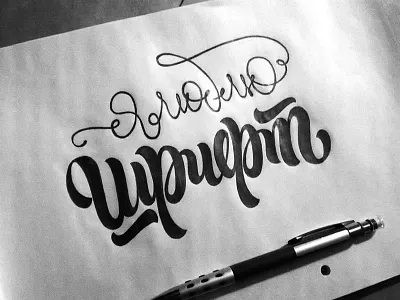 Я люблю
шрифт